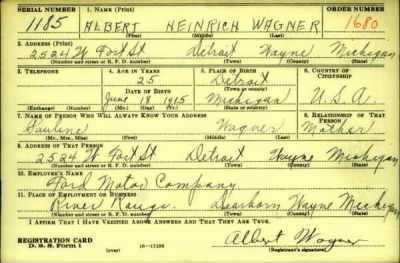 SERIAL NUMBER 1. NAME (Print) ORDER NUMBER
1185 ALBERT HEINRICH WAGNER 1680
(First) (Middle) (Last)
2. ADDRESS (Print)
2524 W Fort St Detroit Wayne Michigan
(Number and street or R. F. D. number) (Town) (County) (State)
3. TELEPHONE 4. AGE IN YEARS 5. PLACE OF BIRTH 6. COUNTRY OF CITIZENSHIP
25 Detroit
DATE OF BIRTH (Town or county)
June 18 1915 Michigan U.S.A.
(Exchange) (Number) (Mo.) (Day) (Yr.) (State or country)
7. NAME OF PERSON WHO WILL ALWAYS KNOW YOUR ADDRESS 8. RELATIONSHIP OF THAT PERSON
Pauline Wagner Mother
(Mr., Mrs., Miss) (First) (Middle) (Last)
9. ADDRESS OF THAT PERSON
2524 W Fort St Detroit Wayne Michigan
(Number and street or R. F. D. number) (Town) (County) (State)
10. EMPLOYER'S NAME
Ford Motor Company
11. PLACE OF EMPLOYMENT OR BUSINESS
River Rouge Dearborn Wayne Michigan
(Number and street or R. F. D. number) (Town) (County) (State)
I AFFIRM THAT I HAVE VERIFIED ABOVE ANSWERS AND THAT THEY ARE TRUE.
REGISTRATION CARD
D. S. S. Form 1 (over) 16-17105 Albert Wagner
(Registrant's signature)